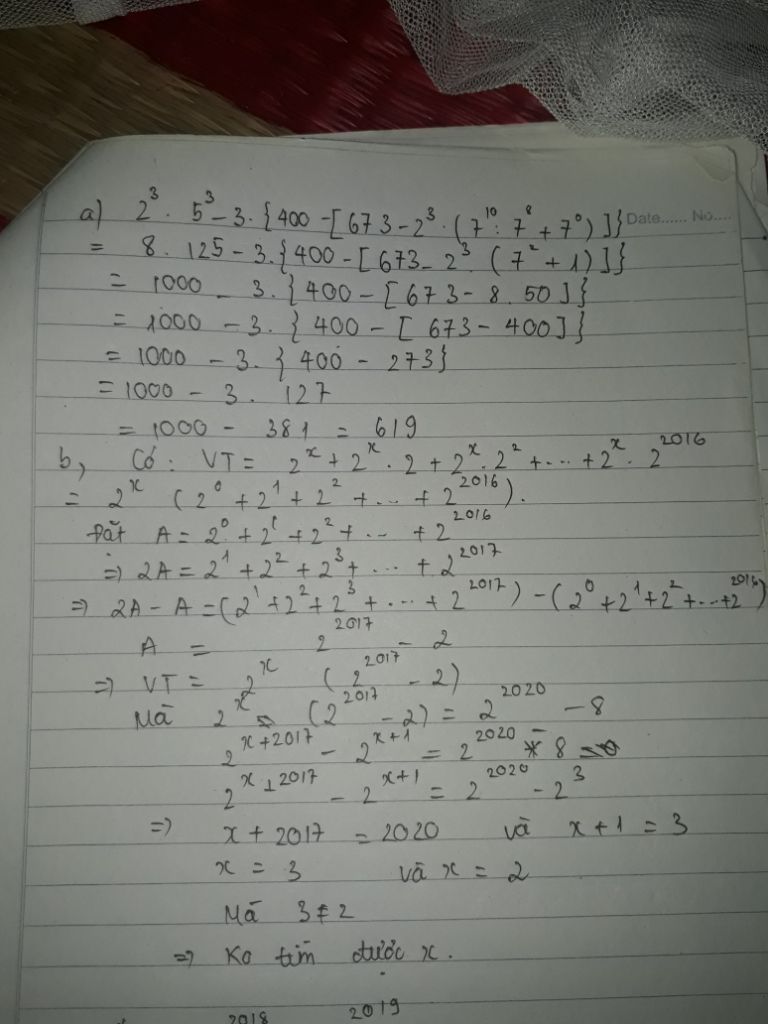 a) 2³ . 5³ - 3 . {400 - [673 - 2³ . (7¹⁰ : 7⁸ + 7⁰)]} Date...... No....
= 8 . 125 - 3 . {400 - [673 - 2³ . (7² + 1)]}
= 1000 - 3 . {400 - [673 - 8 . 50]}
= 1000 - 3 . {400 - [673 - 400]}
= 1000 - 3 . {400 - 273}
= 1000 - 3 . 127
= 1000 - 381 = 619
b, Có : VT = 2ˣ + 2ˣ . 2 + 2ˣ . 2² + ... + 2ˣ . 2²⁰¹⁶
= 2ˣ (2⁰ + 2¹ + 2² + ... + 2²⁰¹⁶).
Đặt A = 2⁰ + 2¹ + 2² + ... + 2²⁰¹⁶
⇒ 2A = 2¹ + 2² + 2³ + ... + 2²⁰¹⁷
⇒ 2A - A = (2¹ + 2² + 2³ + ... + 2²⁰¹⁷) - (2⁰ + 2¹ + 2² + ... + 2²⁰¹⁶)
A = 2²⁰¹⁷ - 2
⇒ VT = 2ˣ (2²⁰¹⁷ - 2)
Mà 2ˣ (2²⁰¹⁷ - 2) = 2²⁰²⁰ - 8
2ˣ⁺²⁰¹⁷ - 2ˣ⁺¹ = 2²⁰²⁰ - 8
2ˣ⁺²⁰¹⁷ - 2ˣ⁺¹ = 2²⁰²⁰ - 2³
⇒ x + 2017 = 2020 và x + 1 = 3
x = 3 và x = 2
Mà 3 ≠ 2
⇒ Ko tìm được x.
2018 2019